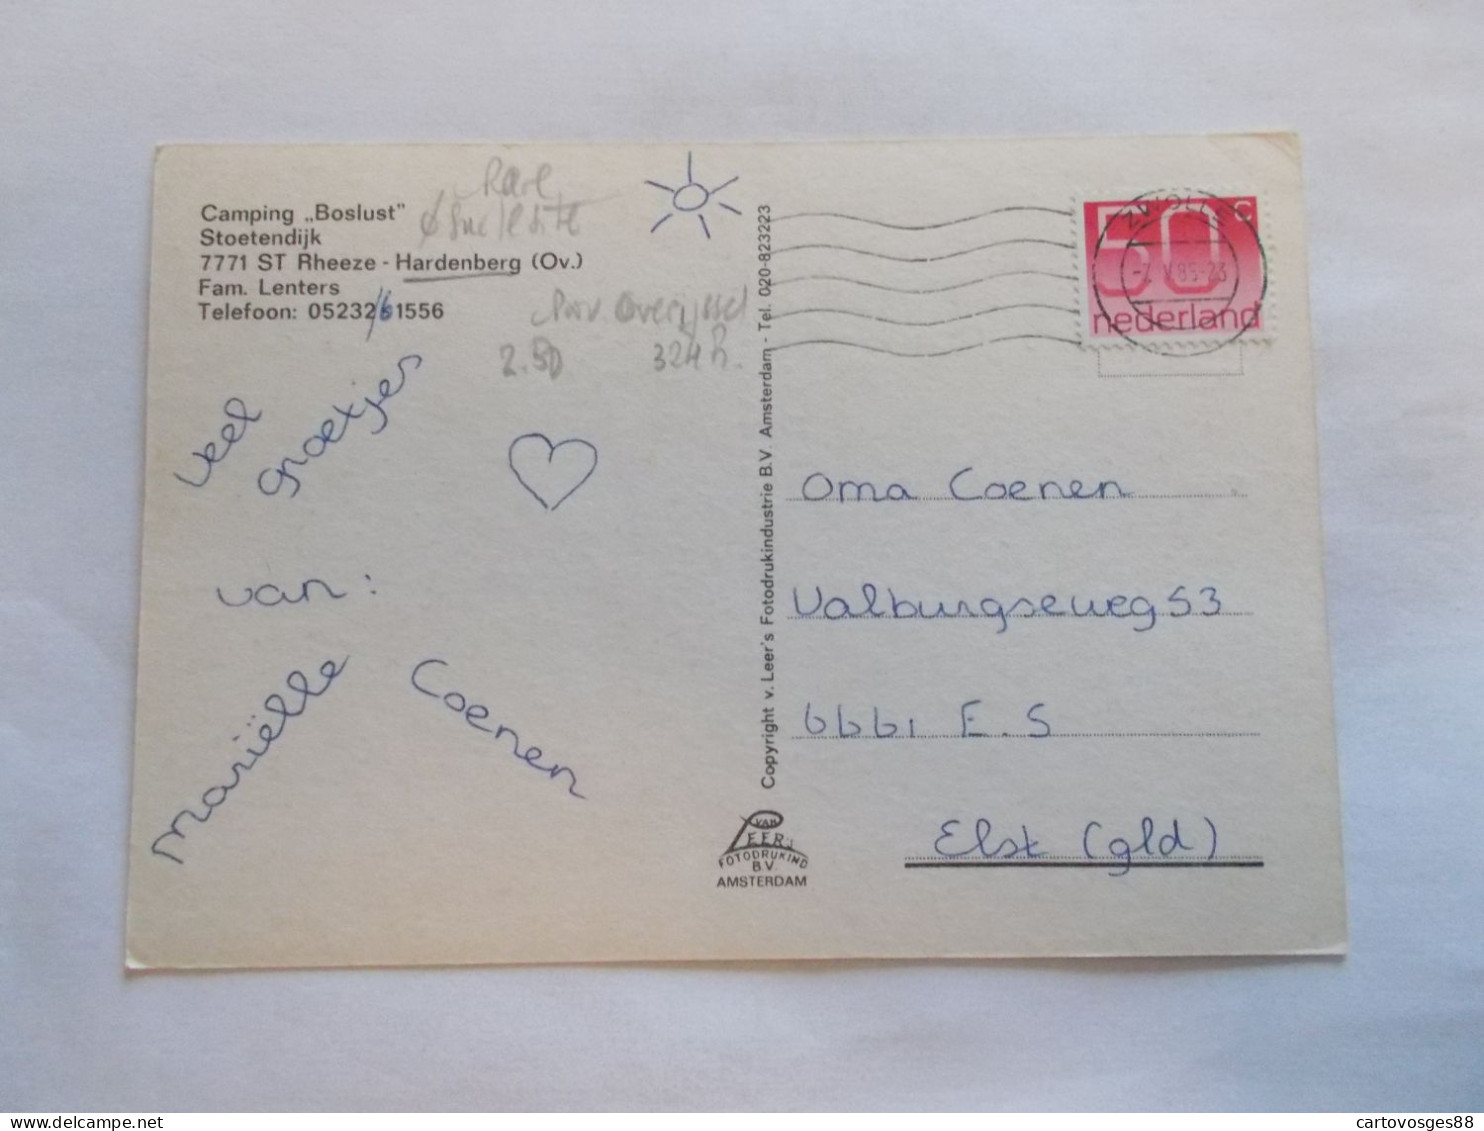 Camping „Boslust"
Stoetendijk
7771 ST Rheeze - Hardenberg (Ov.)
Fam. Lenters
Telefoon: 05232/61556
Rare
Prov. Overijssel
2.50 324 h.
veel
groetjes
van:
Mariëlle Coenen
Copyright v. Leer's Fotodrukindustrie B.V. Amsterdam - Tel. 020-823223
VAN
LEER'S
FOTODRUKIND
B.V.
AMSTERDAM
50c
nederland
ZWOLLE
-7 V 85-23
Oma Coenen
Valburgseweg 53
6661 E.S
Elst (gld)
cartovosges88